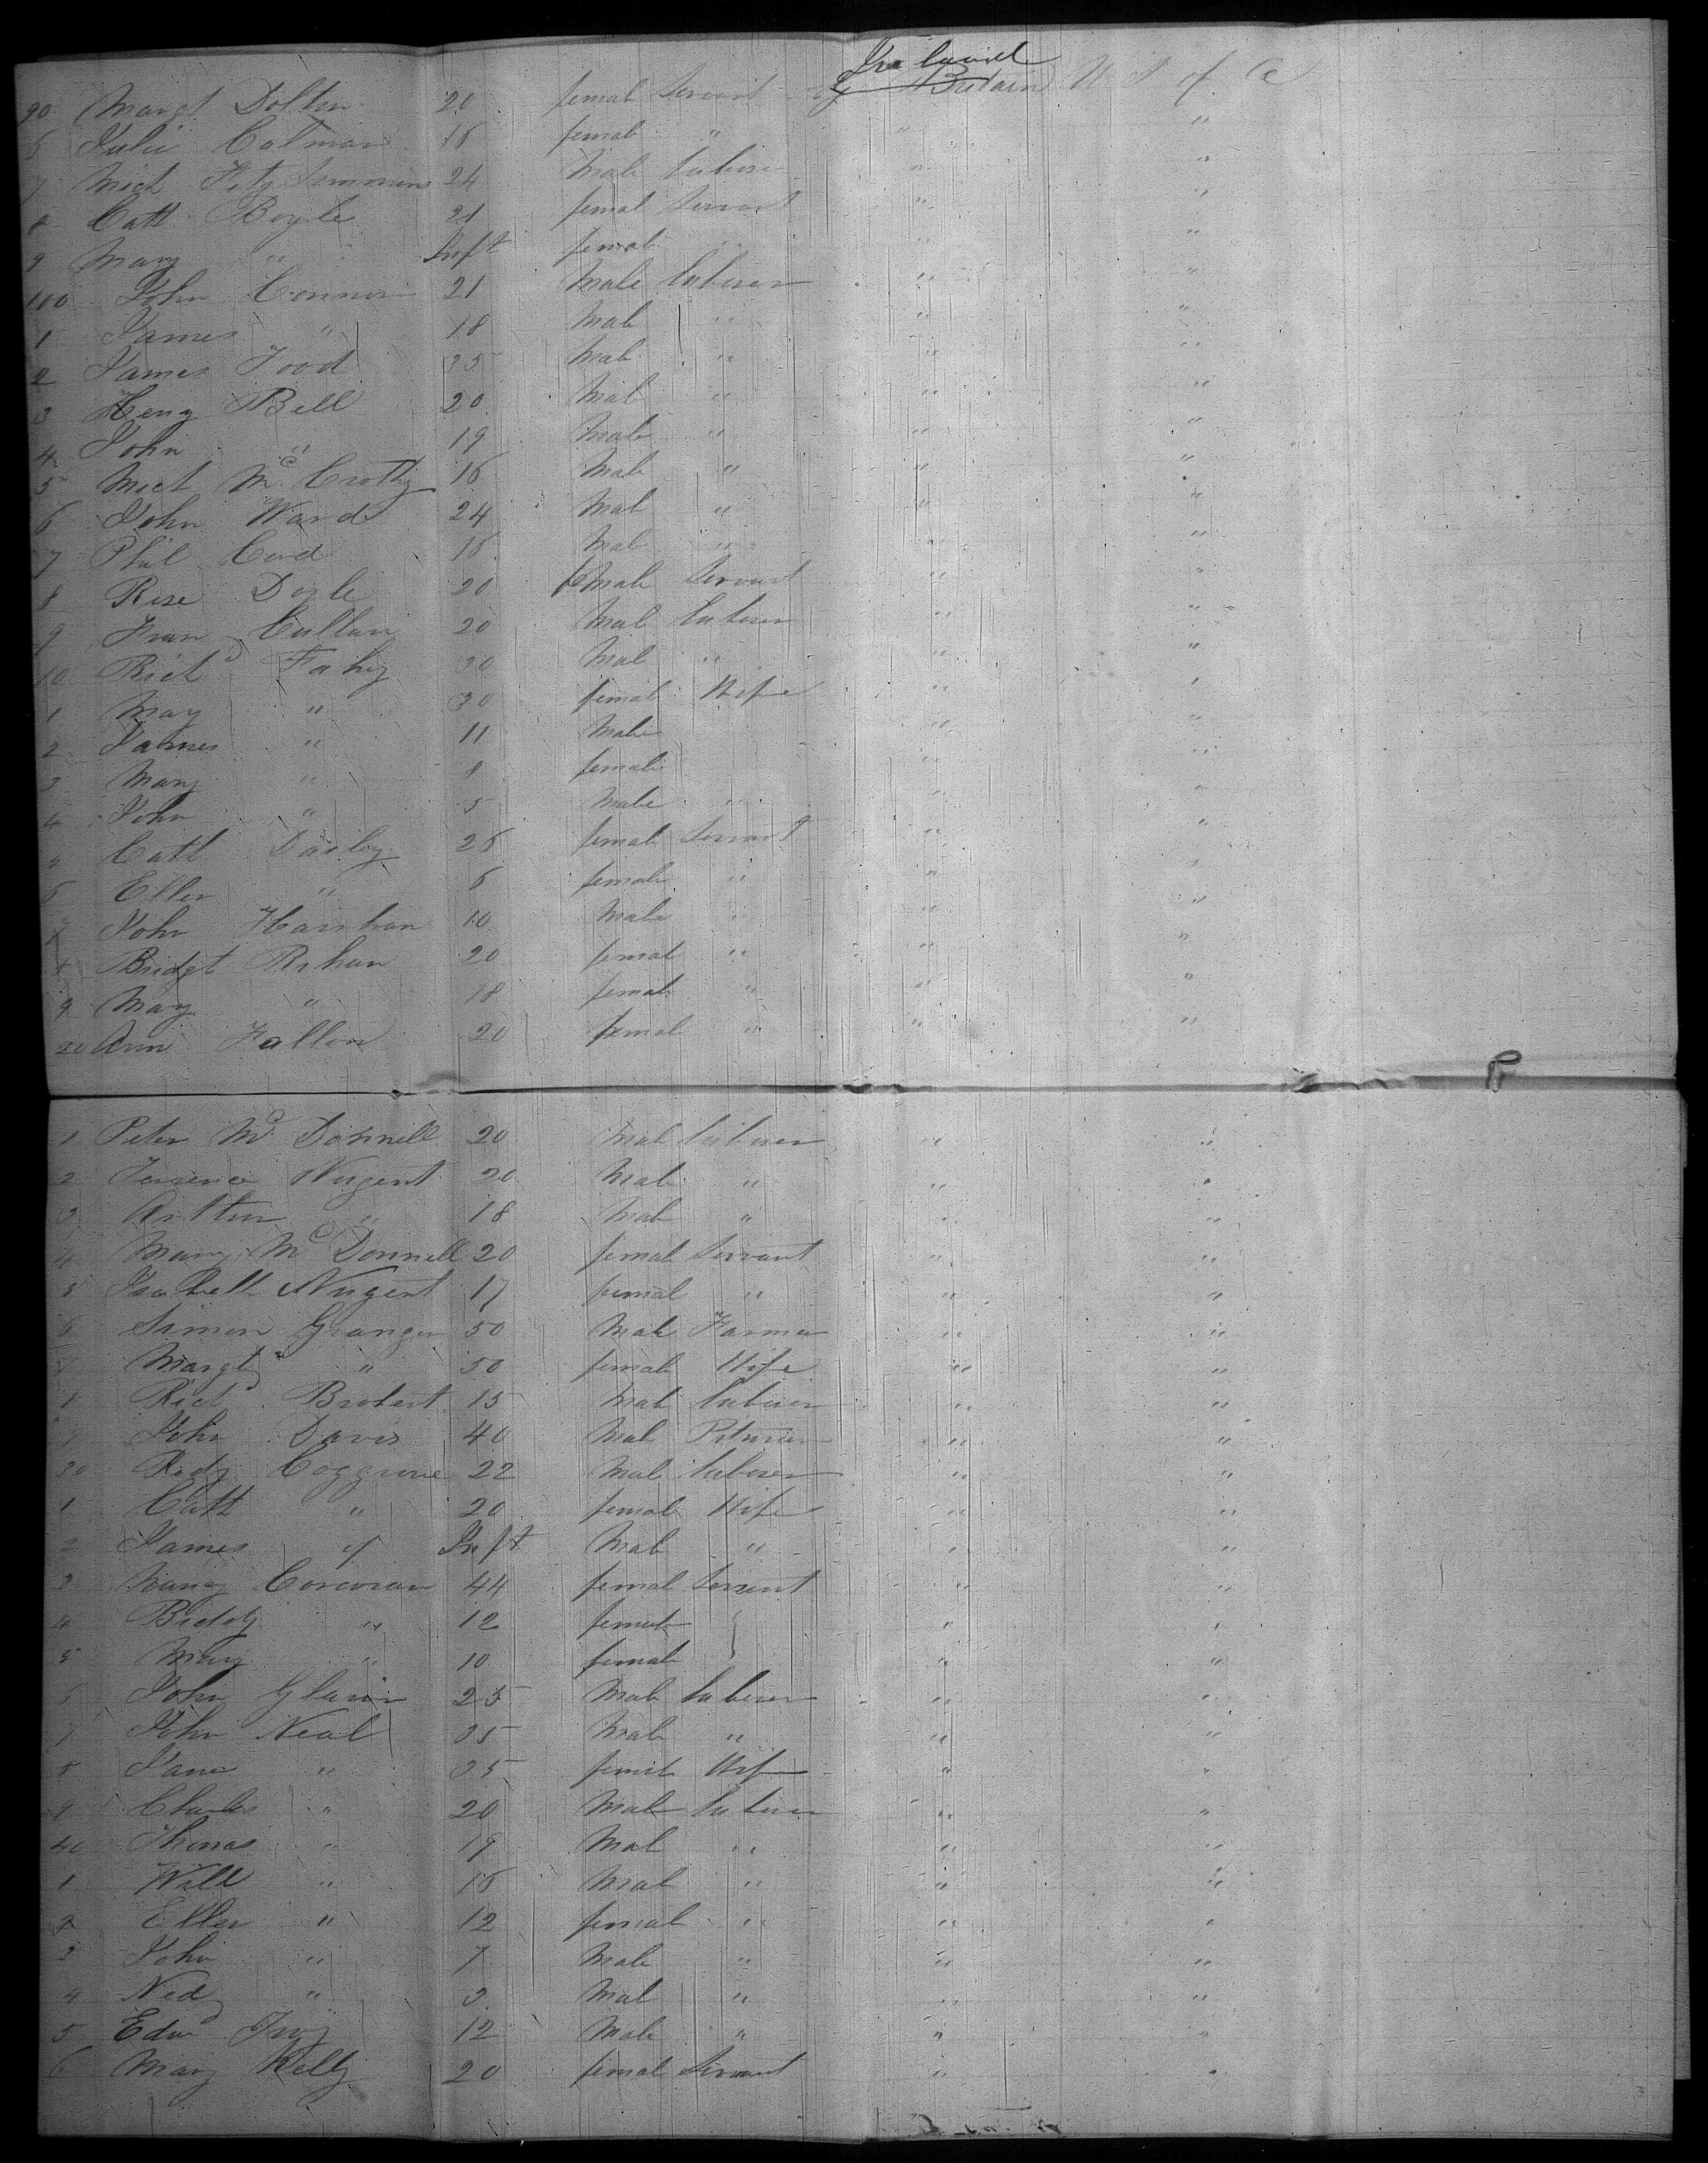 Ireland
90 Margt Dolten 20 female Servant Gt Britain U S of A
6 Julia Colman 16 female "
7 Mich Fitz Simmons 24 Male Laborer " "
8 Cath Boyle 21 femal Servant " "
9 Mary " Inft female " " "
100 John Connor 21 Male Laborer " "
1 James " 18 Male " " "
2 James Food 35 Male " " "
3 Heny Bell 20 Mal " " "
4 John " 19 Male " " "
5 Mich Mc Crothy 16 Male " " "
6 John Ward 24 Male " " "
7 Phil 16 Mal " " "
8 Rose Doyle 20 feMale Servant " "
9 Fran Cullan 20 Mal Laborer " "
10 Richd Fahy 30 Mal " " "
1 May " 30 female Wife " "
2 James " 11 Male " "
3 Mary " 8 female " "
4 John " 5 Male " " "
5 Cath Dasley 26 female Servant " "
6 Ellen " 6 female " " "
7 John Hanrhan 10 Male " " "
8 Bridgt Rshan 20 femal " " "
9 Mary " 18 femal " " "
20 Ann Fallon 20 femal " " "
1 Peter Mc Donnell 20 Mal Laborer " "
2 Terrence Nugent 20 Male " " "
3 Arthur " 18 Male " " "
4 Mary Mc Donnell 20 femal Servant " "
5 Isabell Nugent 17 femal " " "
6 Simon Granger 50 Male Farmer " "
7 Margt " 50 female Wife " "
8 Richd 15 Male Laborer " "
9 John Davis 40 Mal " "
30 Rody Coggrove 22 Male Laborer " "
1 Cath " 20 female Wife " "
2 James " Inft Male " " "
3 Nancy Corcoran 44 femal Servant " "
4 Biddy " 12 female " "
5 Mary " 10 female " "
6 John Glavin 25 Male Laborer " "
7 John Neal 35 Male " " "
8 Jane " 35 female Wife " "
9 Charles " 20 Male Laborer " "
40 Thomas " 19 Mal " " "
1 Will " 16 Mal " " "
2 Ellen " 12 femal " " "
3 John " 7 Male " " "
4 Ned " 3 Mal " " "
5 Edwd 12 Male " " "
6 Mary Kelly 20 femal Servant " "